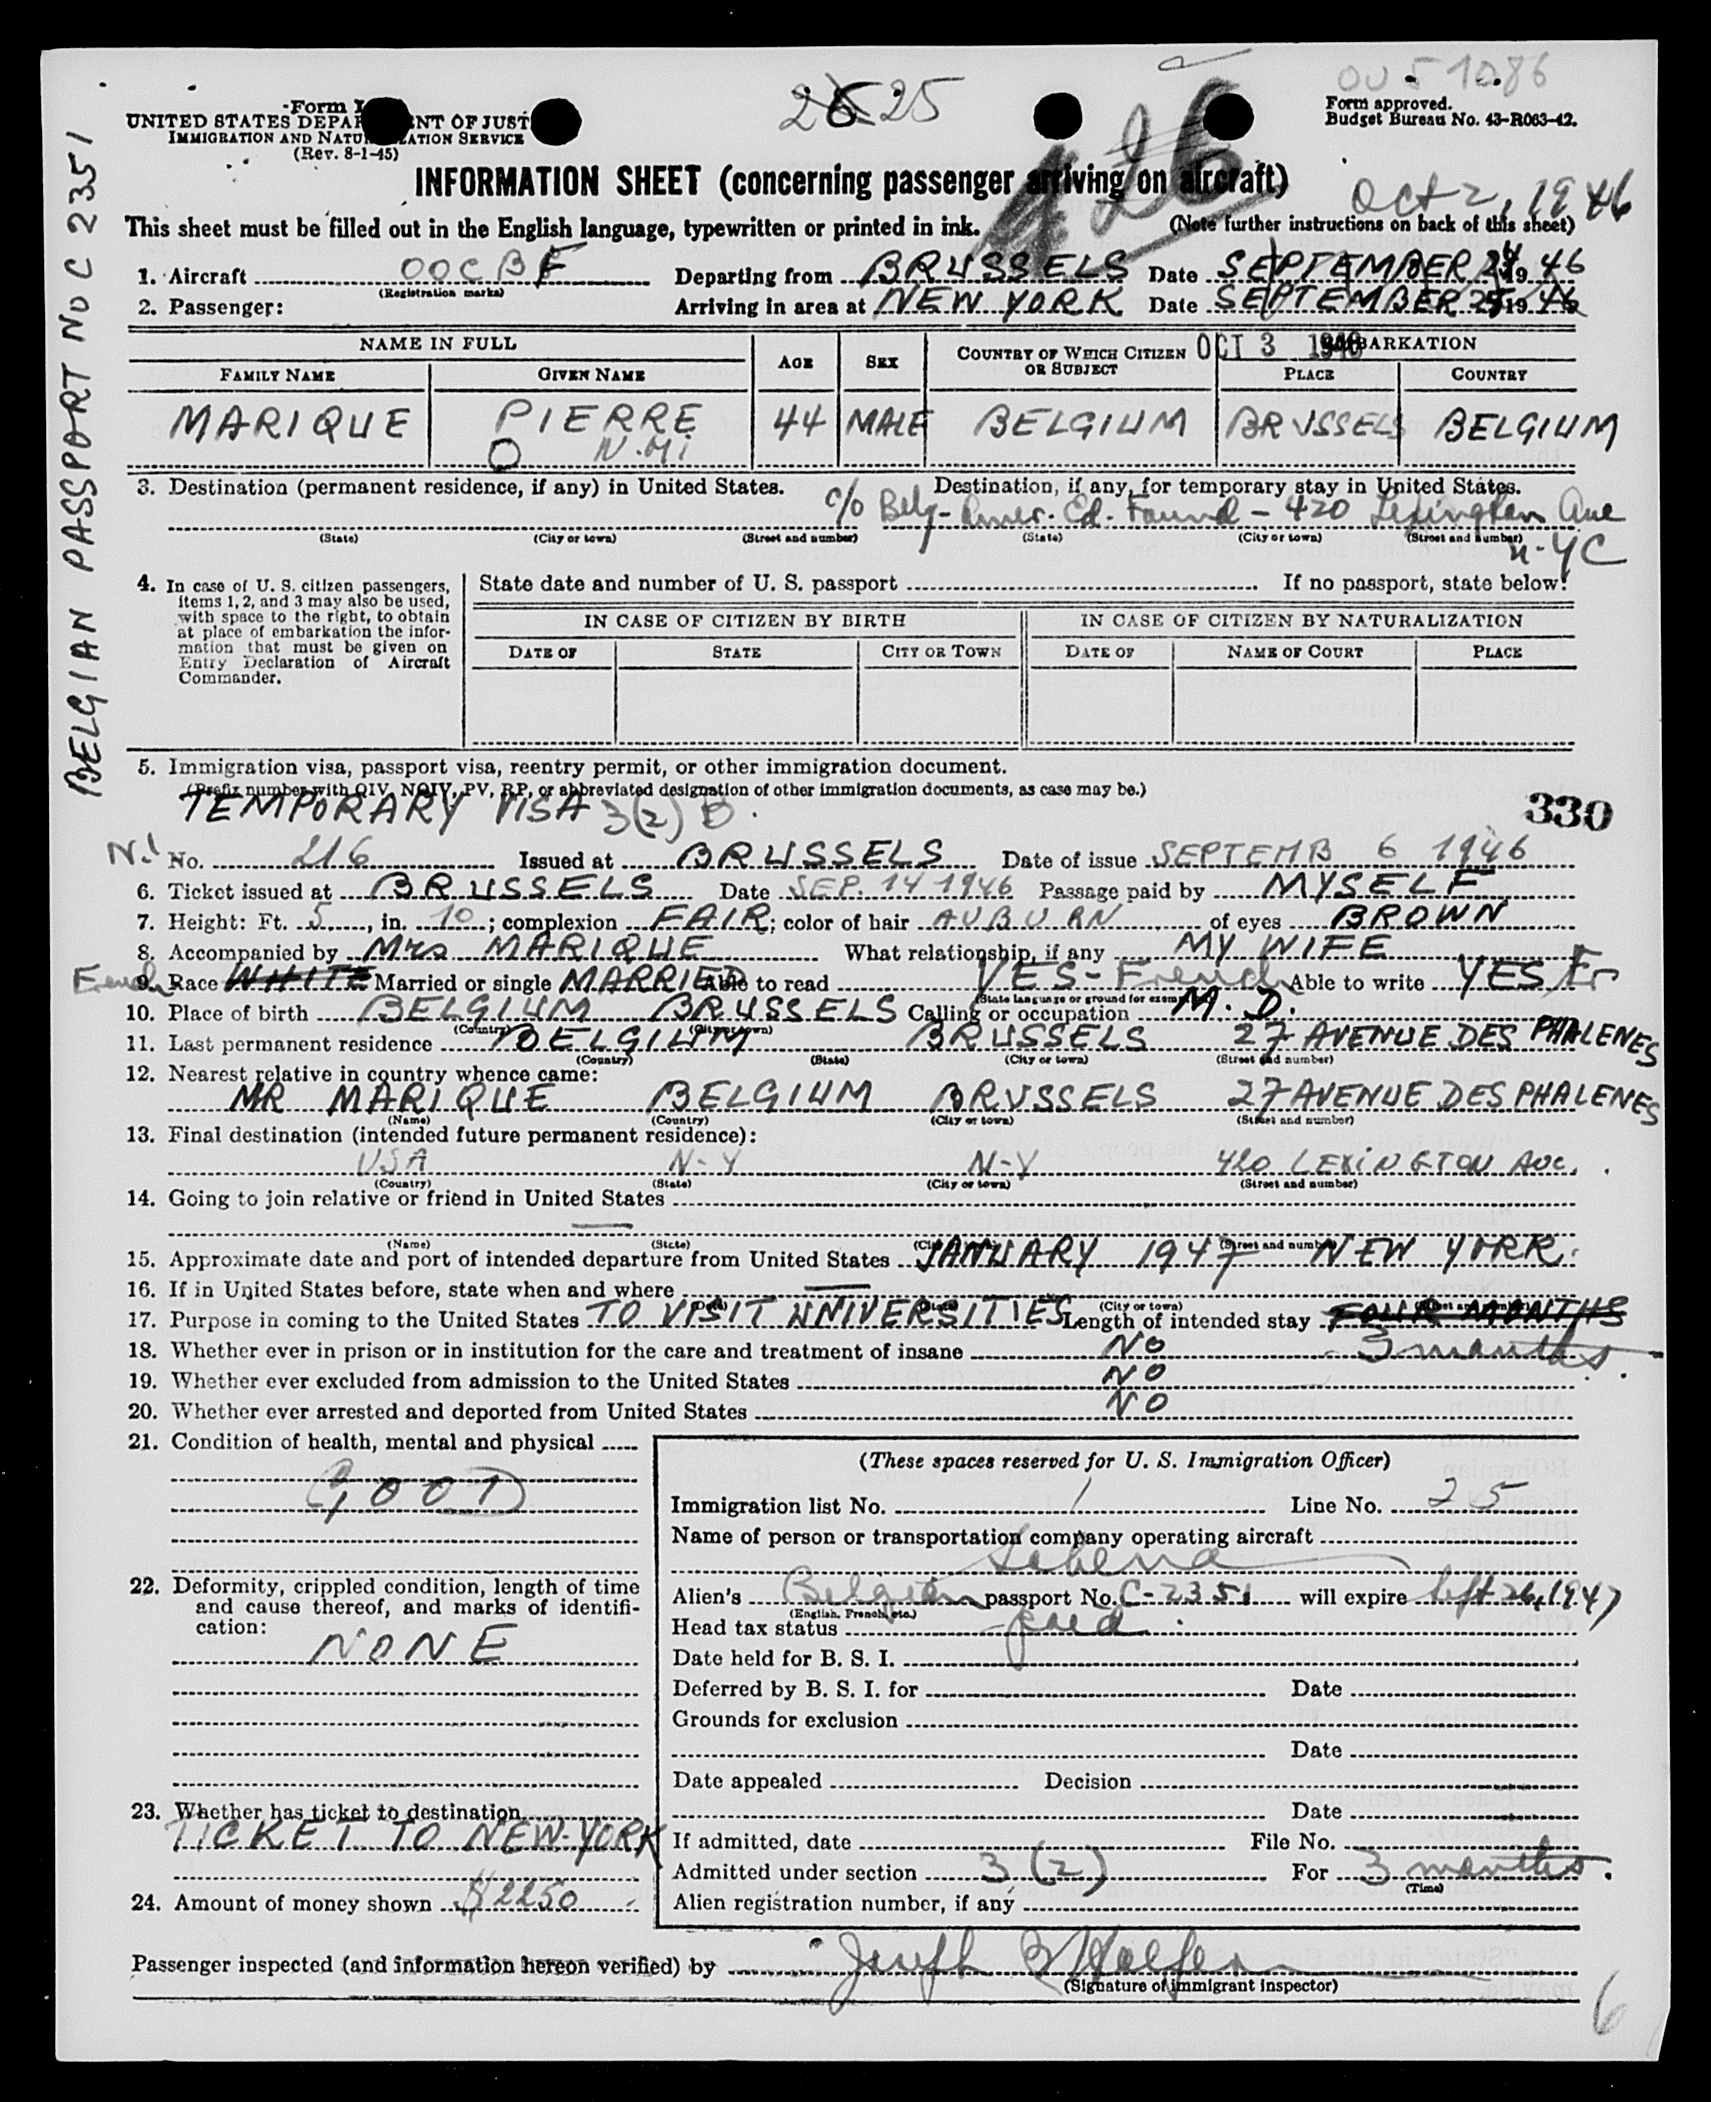 OU 5 1086
26 25
Form I
UNITED STATES DEPA NT OF JUST
IMMIGRATION AND NATU ZATION SERVICE
(Rev. 8-1-45)
Form approved.
Budget Bureau No. 43-R063-42.
426
INFORMATION SHEET (concerning passenger arriving on aircraft)
Oct 2, 1946
This sheet must be filled out in the English language, typewritten or printed in ink. (Note further instructions on back of this sheet)
BELGIAN PASSPORT No C 2351
1. Aircraft OOCBF Departing from BRUSSELS Date SEPTEMBER 24 1946
(Registration marks)
2. Passenger: Arriving in area at NEW YORK Date SEPTEMBER 25 1946
OCT 3 1946
NAME IN FULL AGE SEX COUNTRY OF WHICH CITIZEN OR SUBJECT EMBARKATION
FAMILY NAME GIVEN NAME PLACE COUNTRY
MARIQUE PIERRE 44 MALE BELGIUM BRUSSELS BELGIUM
O N.Mi
3. Destination (permanent residence, if any) in United States. Destination, if any, for temporary stay in United States.
c/o Belg-Amer. Ed. Found - 420 Lexington Ave
(State) (City or town) (Street and number) (State) (City or town) (Street and number)
N-YC
4. In case of U. S. citizen passengers, items 1, 2, and 3 may also be used, with space to the right, to obtain at place of embarkation the information that must be given on Entry Declaration of Aircraft Commander.
State date and number of U. S. passport If no passport, state below:
IN CASE OF CITIZEN BY BIRTH IN CASE OF CITIZEN BY NATURALIZATION
DATE OF STATE CITY OR TOWN DATE OF NAME OF COURT PLACE
5. Immigration visa, passport visa, reentry permit, or other immigration document.
(Prefix number with QIV, NQIV, PV, RP, or abbreviated designation of other immigration documents, as case may be.)
TEMPORARY VISA 3(2) B
330
No. 216 Issued at BRUSSELS Date of issue SEPTEMB 6 1946
6. Ticket issued at BRUSSELS Date SEP. 14 1946 Passage paid by MYSELF
7. Height: Ft. 5, in. 10; complexion FAIR; color of hair AUBURN of eyes BROWN
8. Accompanied by Mrs MARIQUE What relationship, if any MY WIFE
French 9. Race WHITE Married or single MARRIED Able to read YES - French Able to write YES/Fr
(State language or ground for exemption)
10. Place of birth BELGIUM BRUSSELS Calling or occupation M.D.
(Country) (City or town)
11. Last permanent residence BELGIUM BRUSSELS 27 AVENUE DES PHALENES
(Country) (State) (City or town) (Street and number)
12. Nearest relative in country whence came:
MR MARIQUE BELGIUM BRUSSELS 27 AVENUE DES PHALENES
(Name) (Country) (City or town) (Street and number)
13. Final destination (intended future permanent residence):
USA N-Y N-Y 420 LEXINGTON AVE.
(Country) (State) (City or town) (Street and number)
14. Going to join relative or friend in United States
(Name) (State) (City or town) (Street and number)
15. Approximate date and port of intended departure from United States JANUARY 1947 NEW YORK.
16. If in United States before, state when and where
(Date) (State) (City or town) (Street and number)
17. Purpose in coming to the United States TO VISIT UNIVERSITIES Length of intended stay FOUR MONTHS
3 months.
18. Whether ever in prison or in institution for the care and treatment of insane NO
19. Whether ever excluded from admission to the United States NO
20. Whether ever arrested and deported from United States NO
21. Condition of health, mental and physical
GOOD
22. Deformity, crippled condition, length of time and cause thereof, and marks of identification:
NONE
23. Whether has ticket to destination
TICKET TO NEW-YORK
24. Amount of money shown $2250
(These spaces reserved for U. S. Immigration Officer)
Immigration list No. 1 Line No. 25
Name of person or transportation company operating aircraft
Sabena
Alien's Belgian passport No. C-2351 will expire Sept 26, 1947
(English, French, etc.)
Head tax status paid
Date held for B. S. I.
Deferred by B. S. I. for Date
Grounds for exclusion
Date
Date appealed Decision
Date
If admitted, date File No.
Admitted under section 3 (2) For 3 months.
(Time)
Alien registration number, if any
Passenger inspected (and information hereon verified) by Joseph
(Signature of immigrant inspector)
6